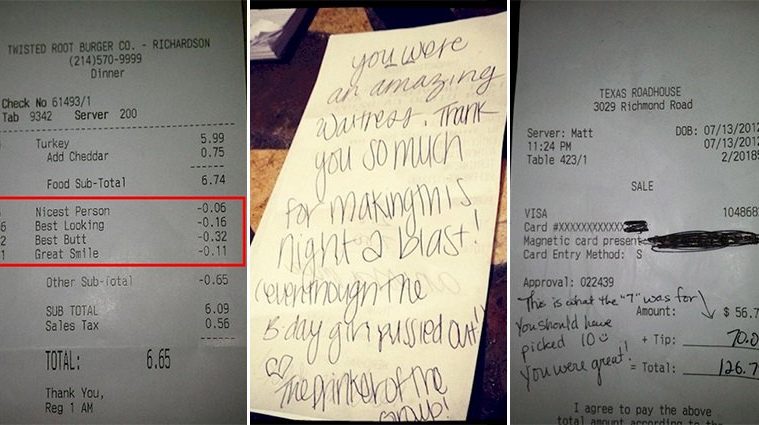 TWISTED ROOT BURGER CO. - RICHARDSON
(214)570-9999
Dinner
Check No 61493/1
Tab 9342 Server 200
Turkey 5.99
Add Cheddar 0.75
Food Sub-Total 6.74
Nicest Person -0.06
6 Best Looking -0.16
2 Best Butt -0.32
1 Great Smile -0.11
Other Sub-Total -0.65
SUB TOTAL 6.09
Sales Tax 0.56
TOTAL: 6.65
Thank You,
Reg 1 AM
you were
an amazing
waitress. Thank
you so much
for making this
night a blast!
(even though the
B-day girl pussied out!)
The Drinker of the
Group!
TEXAS ROADHOUSE
3029 Richmond Road
Server: Matt DOB: 07/13/2012
11:24 PM 07/13/2012
Table 423/1 2/2018
SALE
VISA 104868
Card #XXXXXXXXXXX
Magnetic card present:
Card Entry Method: S
Approval: 022439
This is what the "7" was for
Amount: $ 56.7
You should have
picked 10
+ Tip: 70.0
You were great!
= Total: 126.7
I agree to pay the above
total amount according to the